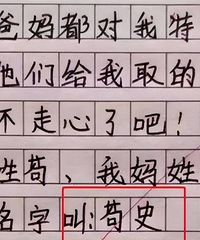 爸妈都对我特
他们给我取的
不走心了吧！
姓苟、我妈姓
名字叫:苟史